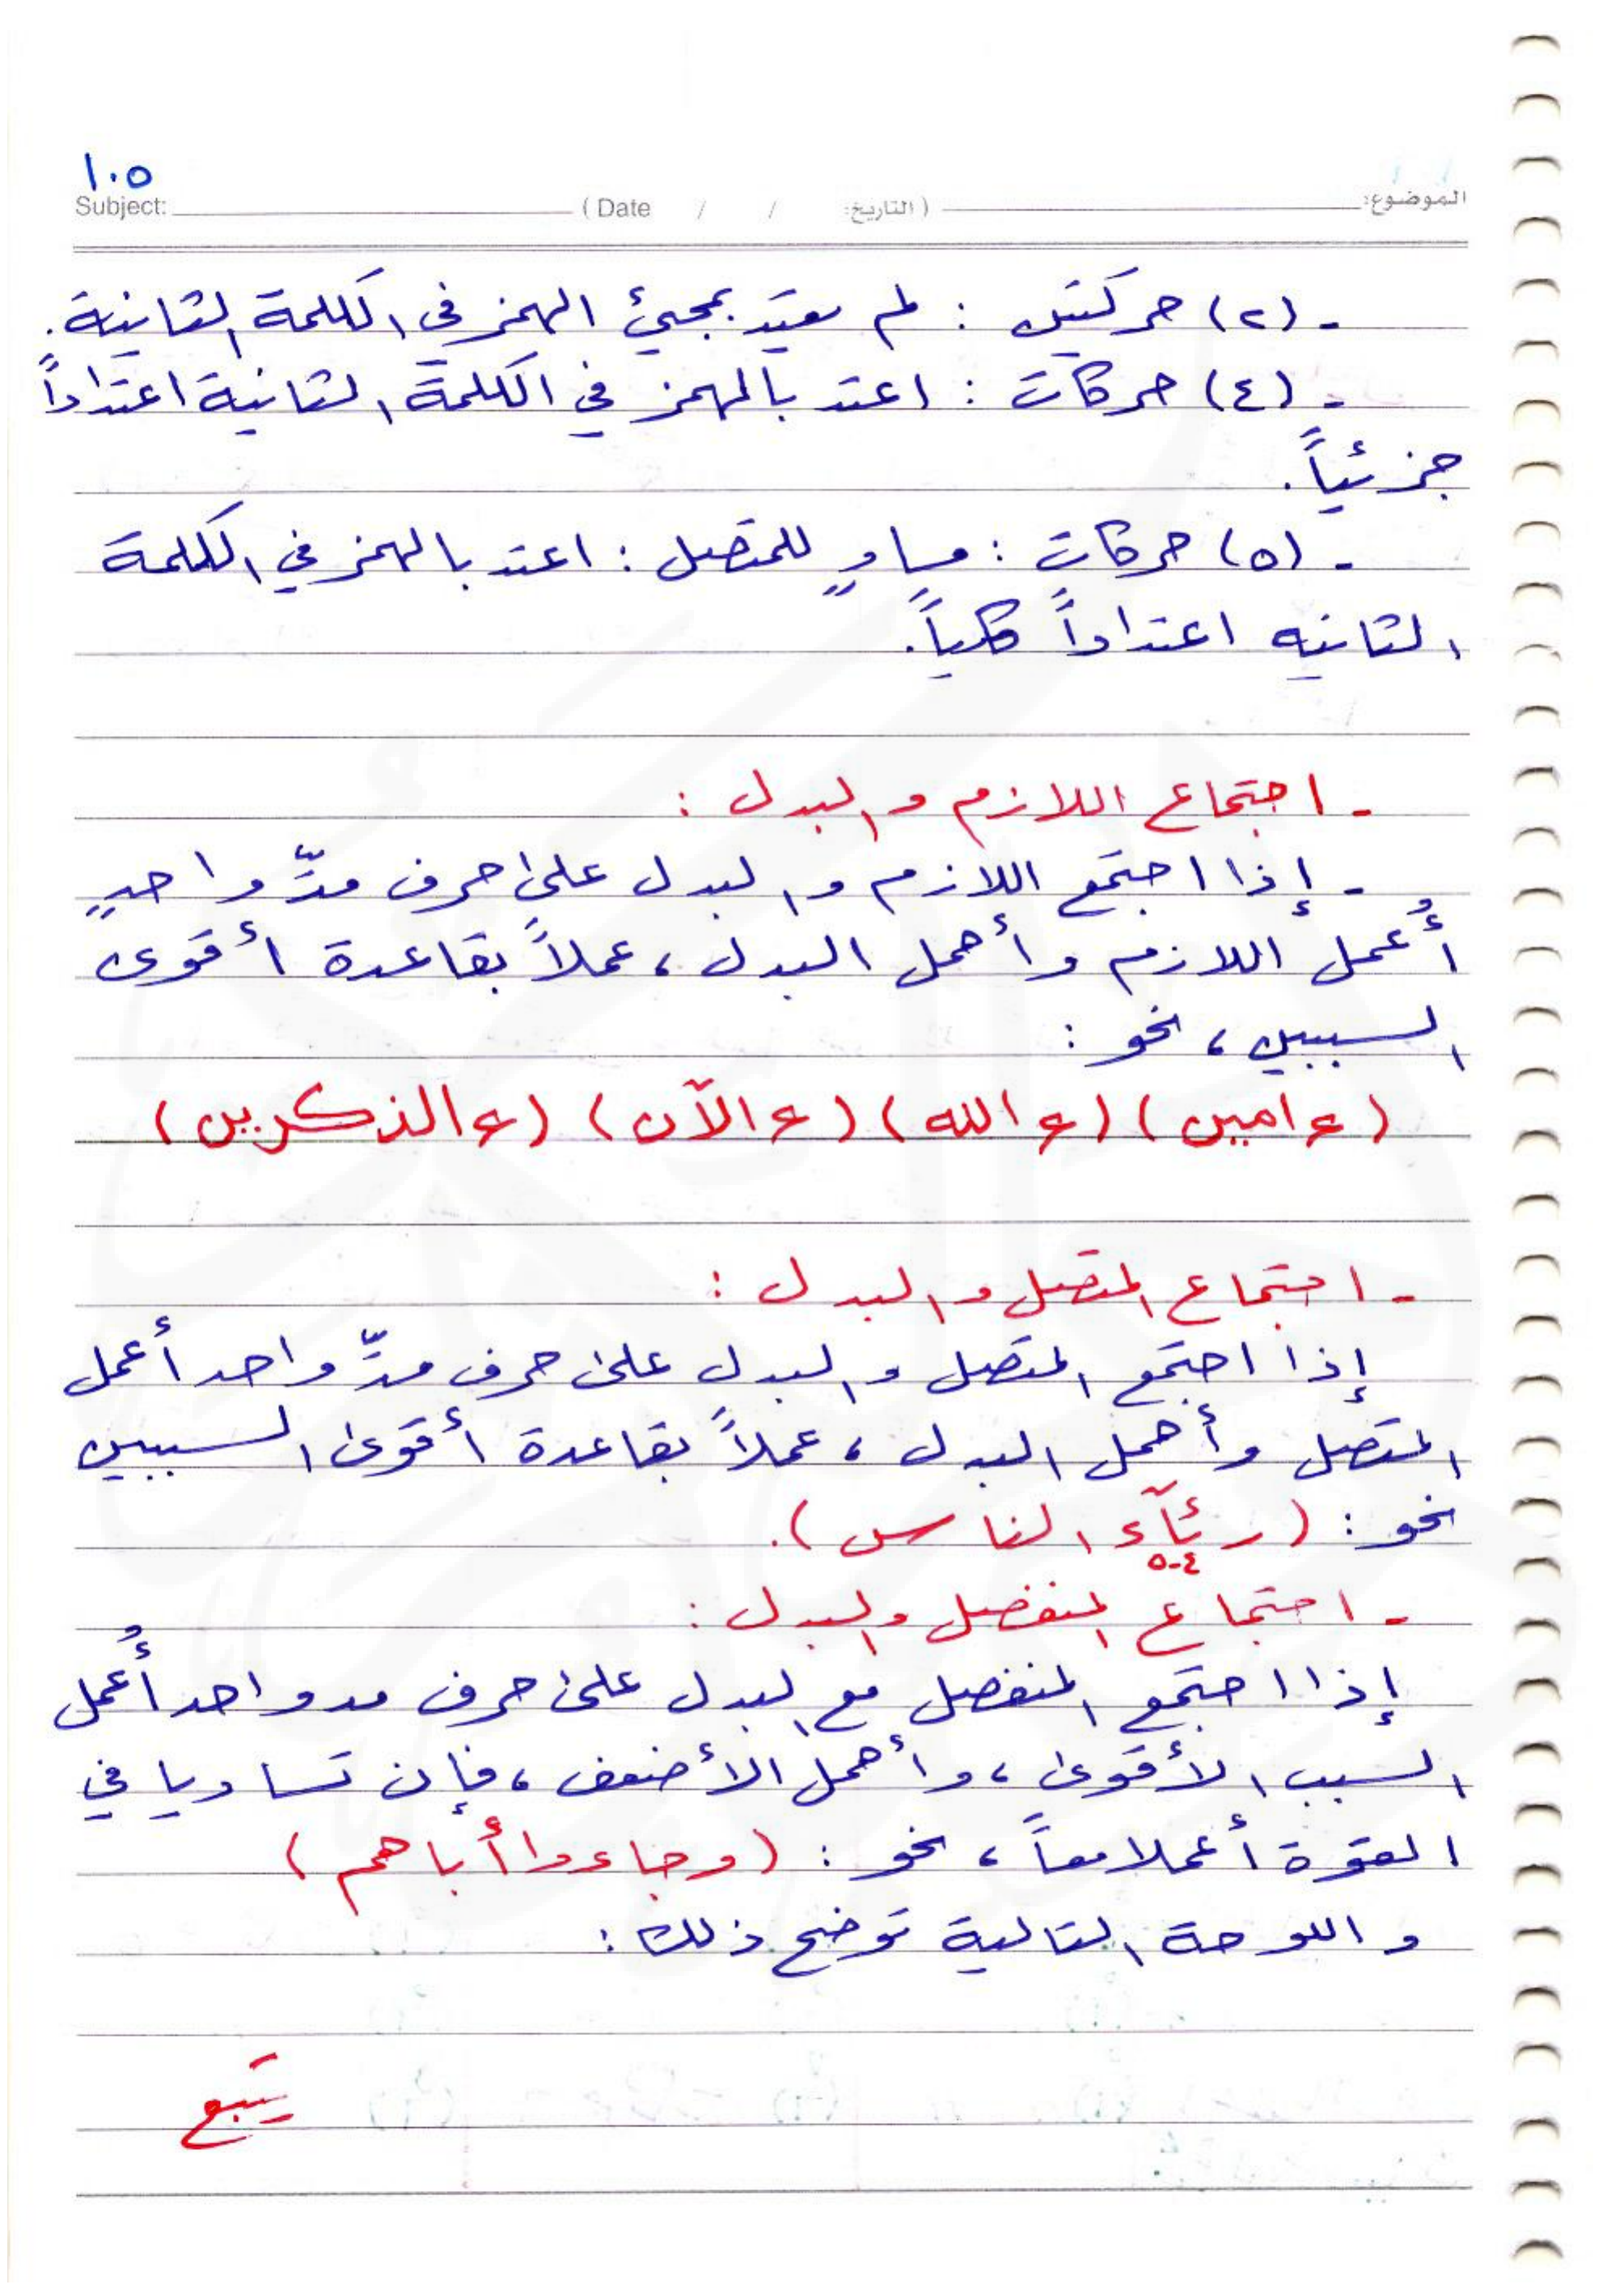 ١٠٥
Subject: (Date / / التاريخ:) الموضوع:
- (٢) حركتين : لم يعتد بمجيئ الهمز في الكلمة الثانية.
- (٤) حركات : اعتد بالهمز في الكلمة الثانية اعتداداً
جزئياً.
- (٥) حركات : مساوٍ للمتصل : اعتد بالهمز في الكلمة
الثانيه اعتداداً كلياً.
- اجتماع اللازم والبدل :
- إذا اجتمع اللازم والبدل على حرف مدّ واحدٍ
أُعمل اللازم وأهمل البدل، عملاً بقاعدة أقوى
السببين، نحو :
(ءامين) (ءالله) (ءالآن) (ءالذكرين)
- اجتماع المتصل والبدل :
إذا اجتمع المتصل والبدل على حرف مدّ واحد أعمل
المتصل وأهمل البدل، عملاً بقاعدة أقوى السببين
نحو : (رئآء الناس).
٤-٥
- اجتماع المنفصل والبدل :
إذا اجتمع المنفصل مع البدل على حرف مد واحد أُعمل
السبب الأقوى، وأهمل الأضعف، فإن تساويا في
القوة أعملا معاً، نحو : (وجاءوا أباهم)
واللوحة التالية توضح ذلك :
يتبع